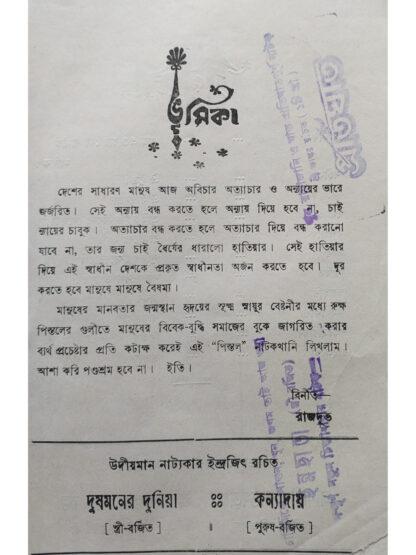 ভূমিকা
দেশের সাধারণ মানুষ আজ অবিচার অত্যাচার ও অন্যায়ের ভারে
জর্জরিত। সেই অন্যায় বন্ধ করতে হলে অন্যায় দিয়ে হবে না, চাই
ন্যায়ের চাবুক। অত্যাচার বন্ধ করতে হলে অত্যাচার দিয়ে বন্ধ করানো
যাবে না, তার জন্য চাই ধৈর্যের ধারালো হাতিয়ার। সেই হাতিয়ার
দিয়ে এই স্বাধীন দেশকে প্রকৃত স্বাধীনতা অর্জন করতে হবে। দূর
করতে হবে মানুষে মানুষে বৈষম্য।
মানুষের মানবতার জন্মস্থান হৃদয়ের সূক্ষ্ম স্নায়ুর বেষ্টনীর মধ্যে রুক্ষ
পিস্তলের গুলীতে মানুষের বিবেক-বুদ্ধি সমাজের বুকে জাগরিত করার
ব্যর্থ প্রচেষ্টার প্রতি কটাক্ষ করেই এই “পিস্তল” নাটকখানি লিখলাম।
আশা করি পণ্ডশ্রম হবে না। ইতি।
বিনীত
রাজদূত
উদীয়মান নাট্যকার ইন্দ্রজিৎ রচিত
দুষমনের দুনিয়া
কন্যাদায়
[ স্ত্রী-বর্জিত ]
[ পুরুষ-বর্জিত ]